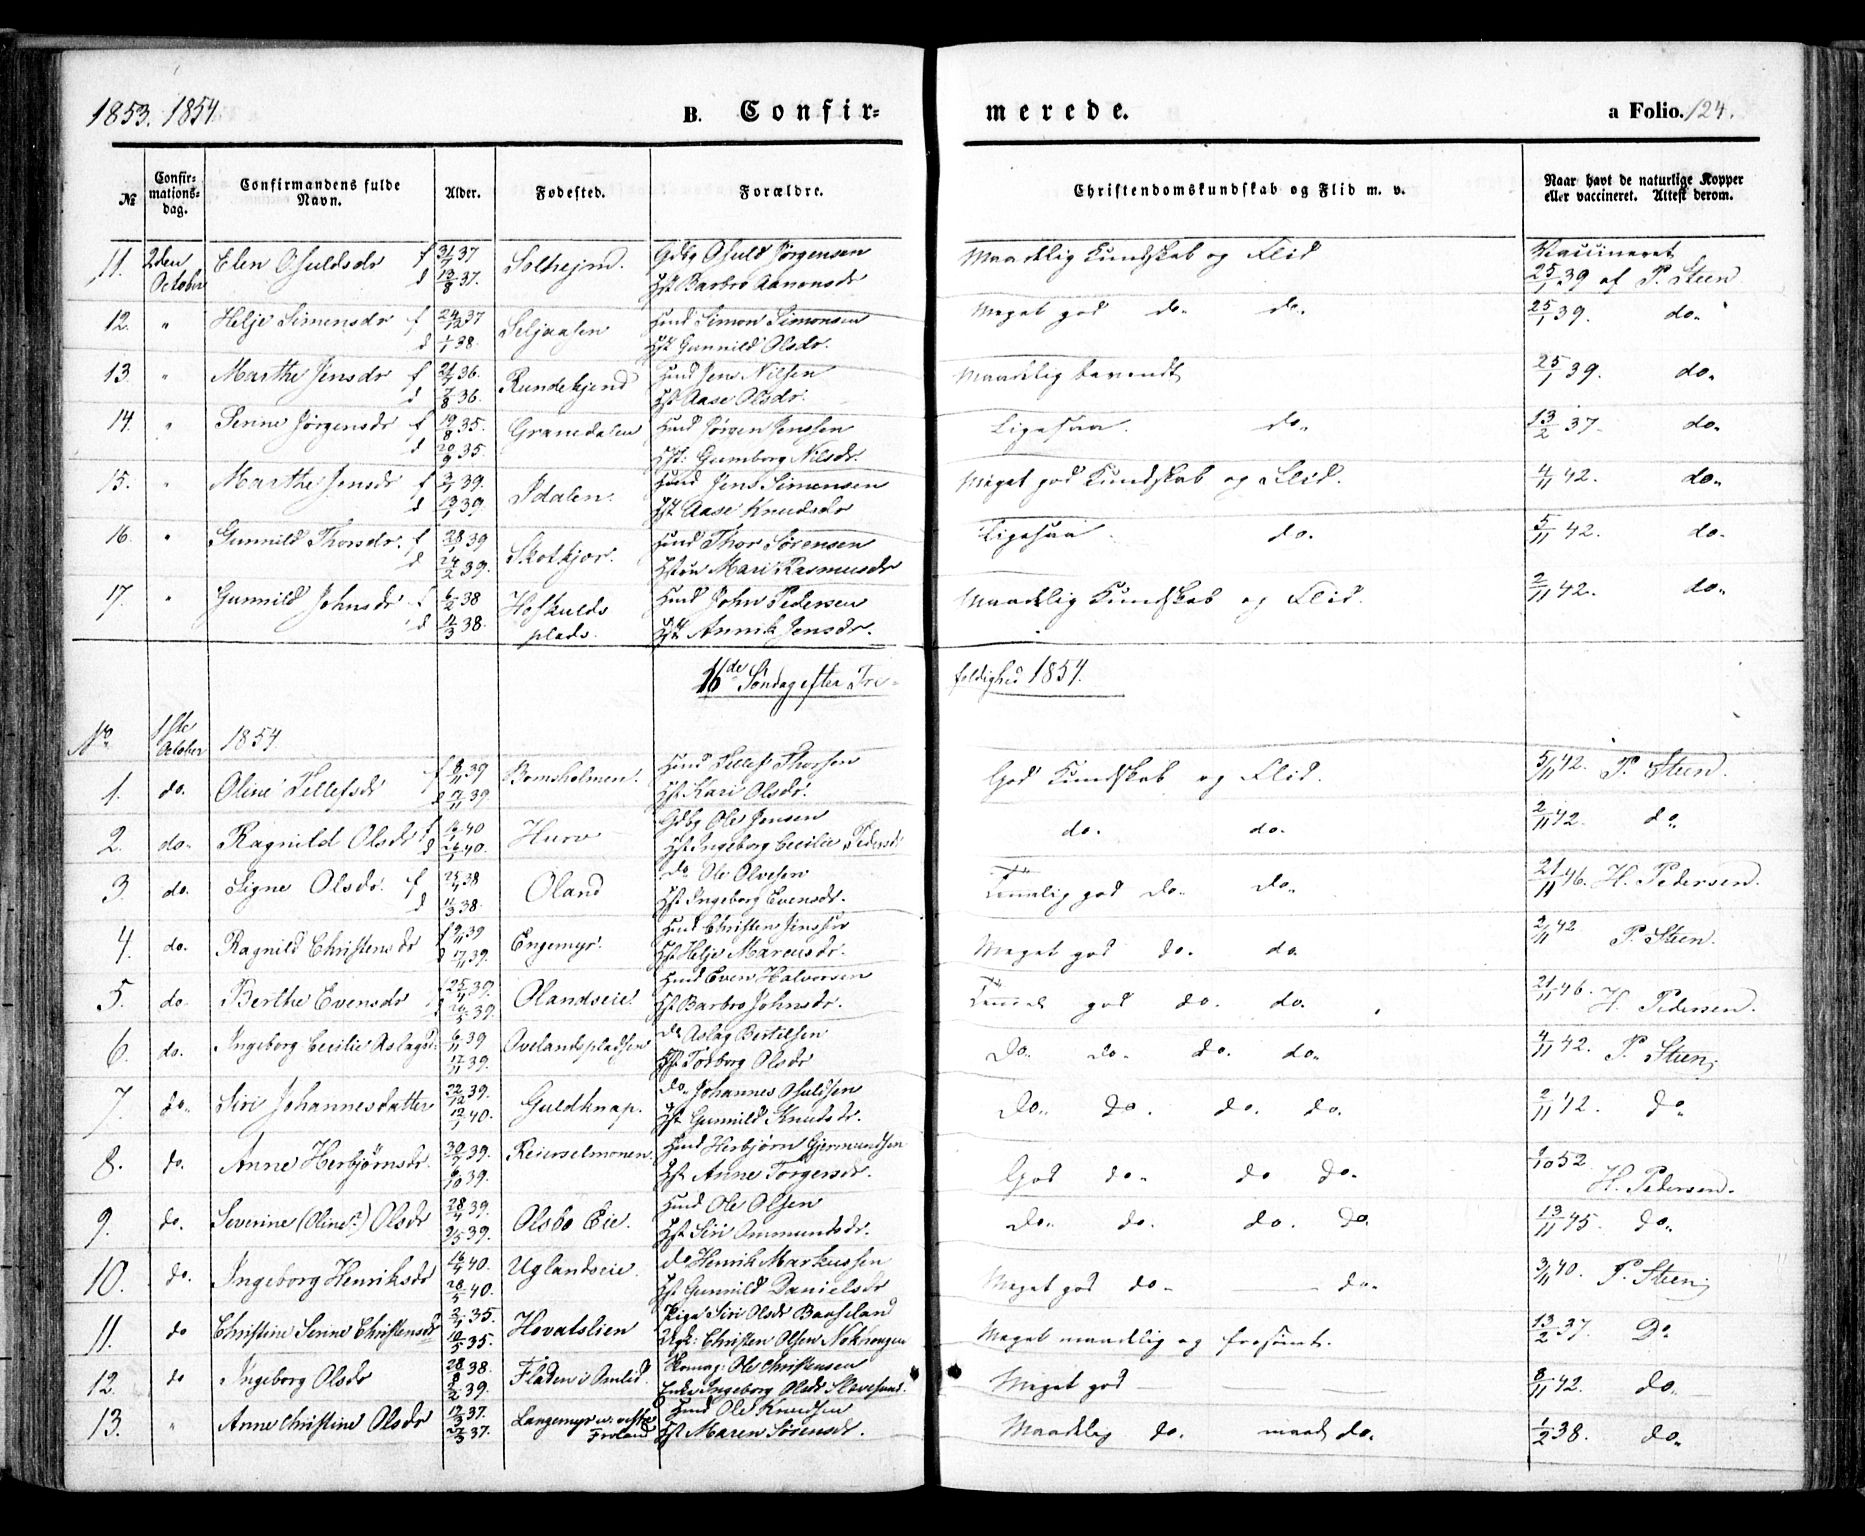 1853. 1854. B. Confir= merede. a Folio. 124.
№ Confir-mations-dag. Confirmandens fulde Navn. Alder. Fødested. Forældre. Christendomskundskab og Flid m. v. Naar havt de naturlige Kopper eller vaccineret. Attest derom.
11. 2den October Elen Osuldsdr f 31/7 37 Solhejm. Gdbg Osuld Jørgensen Maadelig Kundskab og Flid Vaccineret
d 13/8 37. Hst Barbro Aanonsdr 25/1 39 af P. Steen
12. " Helje Simensdr f 24/12 37 Seljaasen Huusd Simon Simonsen Meget god do. do. 25/1 39. do.
d 1/1 38. Hst Gunnild Olsdr.
13. " Marthe Jensdr f 21/7 36. Rundekjend Huusd Jens Nilsen Maadelig bevendt 25/1 39. do.
d 7/8 36. Hst Aase Olsdr.
14. " Serine Jørgensdr f 19/8 35. Granedalen Huusd Jørgen Jenssen Ligesaa. do. 13/2 37. do.
d 20/9 35. Hst. Gumborg Nilsdr.
15. " Marthe Jensdr f 3/1 39. Idalen. Huusd Jens Simensen Meget god Kundskab og Flid. 4/11 42. do.
d 13/1 39 Hst Aase Knudsdr
16. " Gunnild Thorsdr. f 28/1 39 Skotkjær. Huusd Thor Sørensen Ligesaa. do. 5/11 42. do.
d 24/2 39. Hstru Mari Rasmusdr
17. " Gunnild Johnsdr f 6/2 38 Hofsulds Huusd John Pedersen Maadelig Kundskab og Flid. 2/11 42. do.
d 11/3 38. plads. Hst Annik Jensdr.
16de Søndag efter Tre- foldighed 1854.
No. 1ste October 1854
1. do. Oline Tellefsdr f 8/11 39 Bomsholmen. Huusd Tellef Thorsen God Kundskab og Flid. 5/11 42. P. Steen.
d 17/11 39 Hst Kari Olsdr.
2. do. Ragnild Olsdr f 16/1 40 Hurv Gdbg Ole Jensen do. do. 2/11 42. do.
d 26/1 40. Hst Ingeborg Cecilie Pedersdr
3. do. Signe Olsdr. f 25/1 38 Oland do Ole Olvesen Temmelig god do. do. 21/11 46. H. Pedersen.
d 11/3 38. Hst Ingeborg Evensdr.
4. do. Ragnild Christensdr f 9/11 39 Engemyr. Huusd Christen Jenssen Meget god do. do. 2/11 42. P. Steen.
d 17/11 39. Hst Helje Marcusdr.
5. do. Berthe Evensdr 25/4 39. Olandseie. Huusd Even Halvorsen Temmel god do. do. 21/11 46. H. Pedersen.
26/5 39. Hst Barbro Johnsdr.
6. do. Ingeborg Cecilie Aslagsd. 6/11 39 Ovelandspladsen do Aslag Bertilsen Do. do. do. do. 4/11 42. P. Steen.
17/11 39. Hst Torborg Olsdr
7. do. Siri Johannesdatter 22/12 39. Guldknap. do. Johannes Osuldsen Do. do. do. do. 2/11 42. do
12/1 40. Hst Gunnild Knudsdr.
8. do. Anne Herbjørnsdr. 30/9 39. Reierselmonen. Huusd Herbjørn Gjermundsen God do. do do. 9/10 52. H. Pedersen.
6/10 39. Hst Anne Torgersdr.
9. do. Severine (Oline?) Olsdr 28/4 39. Olsbo Eie. Huusd Ole Olsen Do. do. do. do 13/11 45. do.
9/5 39. Hst Siri Ommundsdr.
10. do. Ingeborg Henriksdr 16/4 40. Uglandseie. do Henrik Markussen Meget god do. — do. 3/11 40. P. Steen.
28/5 40. Hst Gunnild Danielsdr
11. do Christine Serine Christensdr 2/4 35. Hovatslien Pige Siri Olsdr Baaseland Meget maadelig og forsømt. 13/2 37. Do
10/5 35. Ugk: Christen Olsen
12. do Ingeborg Olsdr 28/8 38. Fladen i Omlid. Ole Christensen Meget god — 8/11 42. do.
2/2 39. Enke Ingeborg Olsdr
13. " Anne Christine Olsdr 12/3 37. Langemyr Huusd Ole Knudsen Maadelig do. maad do. 1/2 38. do.
27/3 37. Froland Hst Maren Sørensdr.